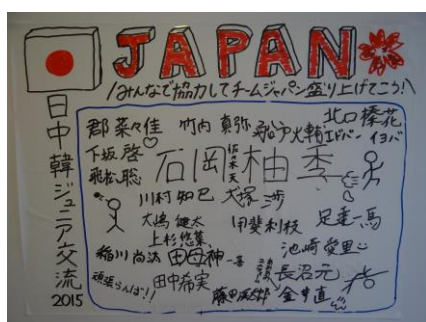 JAPAN
\みんなで協力してチームジャパン盛り上げてこう!/
日中韓ジュニア交流
2015
郡 菜々佳 竹内 真弥 北口榛花
下坂 啓 石岡柚季
飛松 聡
川村 知巳 犬塚 渉
大嶋 健太 甲斐利枝 足立一馬
上杉悠菜
稲川 尚汰 田母神 池崎愛里
頑張らんば!! 田中希実 長沼元
金井直